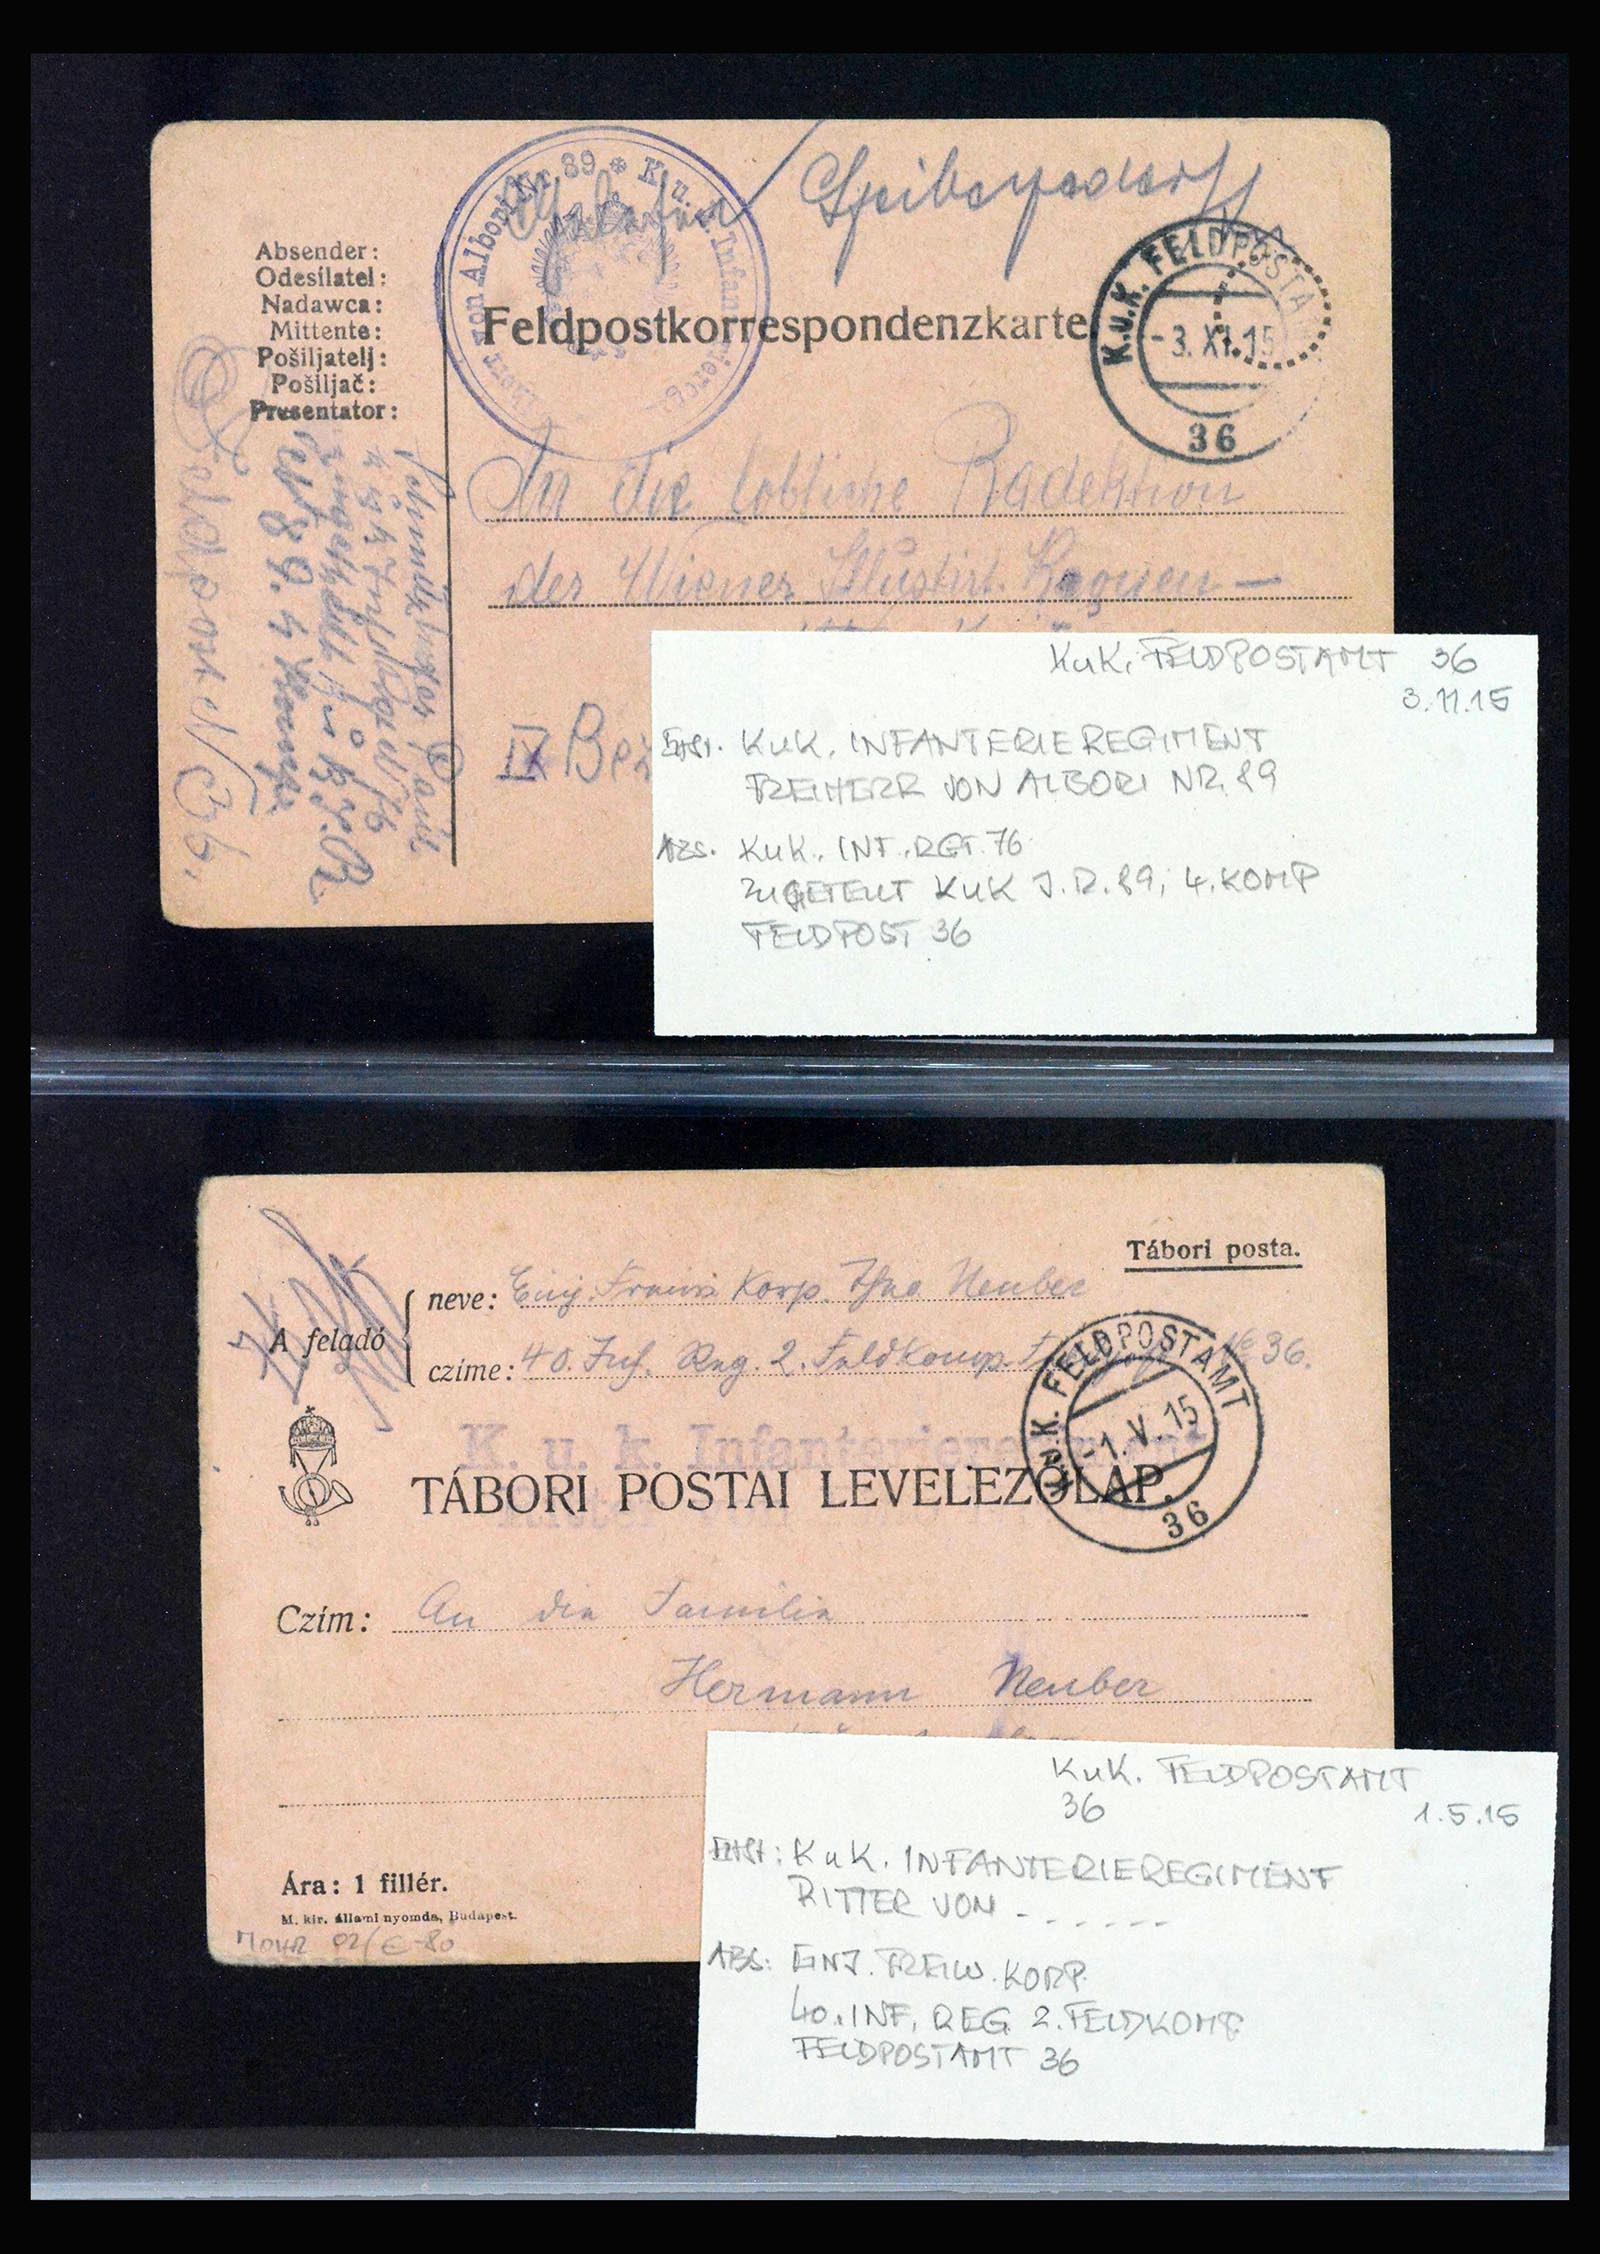 Feldpostkorrespondenzkarte
Absender:
Odesílatel:
Nadawca:
Mittente:
Pošiljatelj:
Pošiljač:
Presentator:
von Albori Nr. 89 * K. u. k. Infanterie
K.u.K. FELDPOSTA
-3. XI. 15
36
An die löbliche Radektion
der Wiener Illustirt.
IX Bez
Feldpost N 36.
KuK. FELDPOSTAMT 36
3.11.15
KuK. INFANTERIEREGIMENT
FREIHERR VON ALBORI NR. 89
ABS. KuK. INF. RGT. 76
ZUGETEILT KuK J.R. 89, 4. KOMP
FELDPOST 36
Tábori posta.
A feladó
neve: Korp. Neuber
czíme: 40. Inf. Reg. 2. Feldkomp. No 36.
K. u. k. Infanterieregiment
TÁBORI POSTAI LEVELEZŐLAP.
K.u.K. FELDPOSTAMT
-1. V. 15
36
Czím: An die Familie
Hermann Neuber
Ára: 1 fillér.
M. kir. állami nyomda, Budapest.
KuK. FELDPOSTAMT
36 1.5.15
KuK. INFANTERIEREGIMENT
RITTER VON - - - - - -
ABS: EINJ. FREIW. KORP.
40. INF. REG. 2. FELDKOMP
FELDPOSTAMT 36